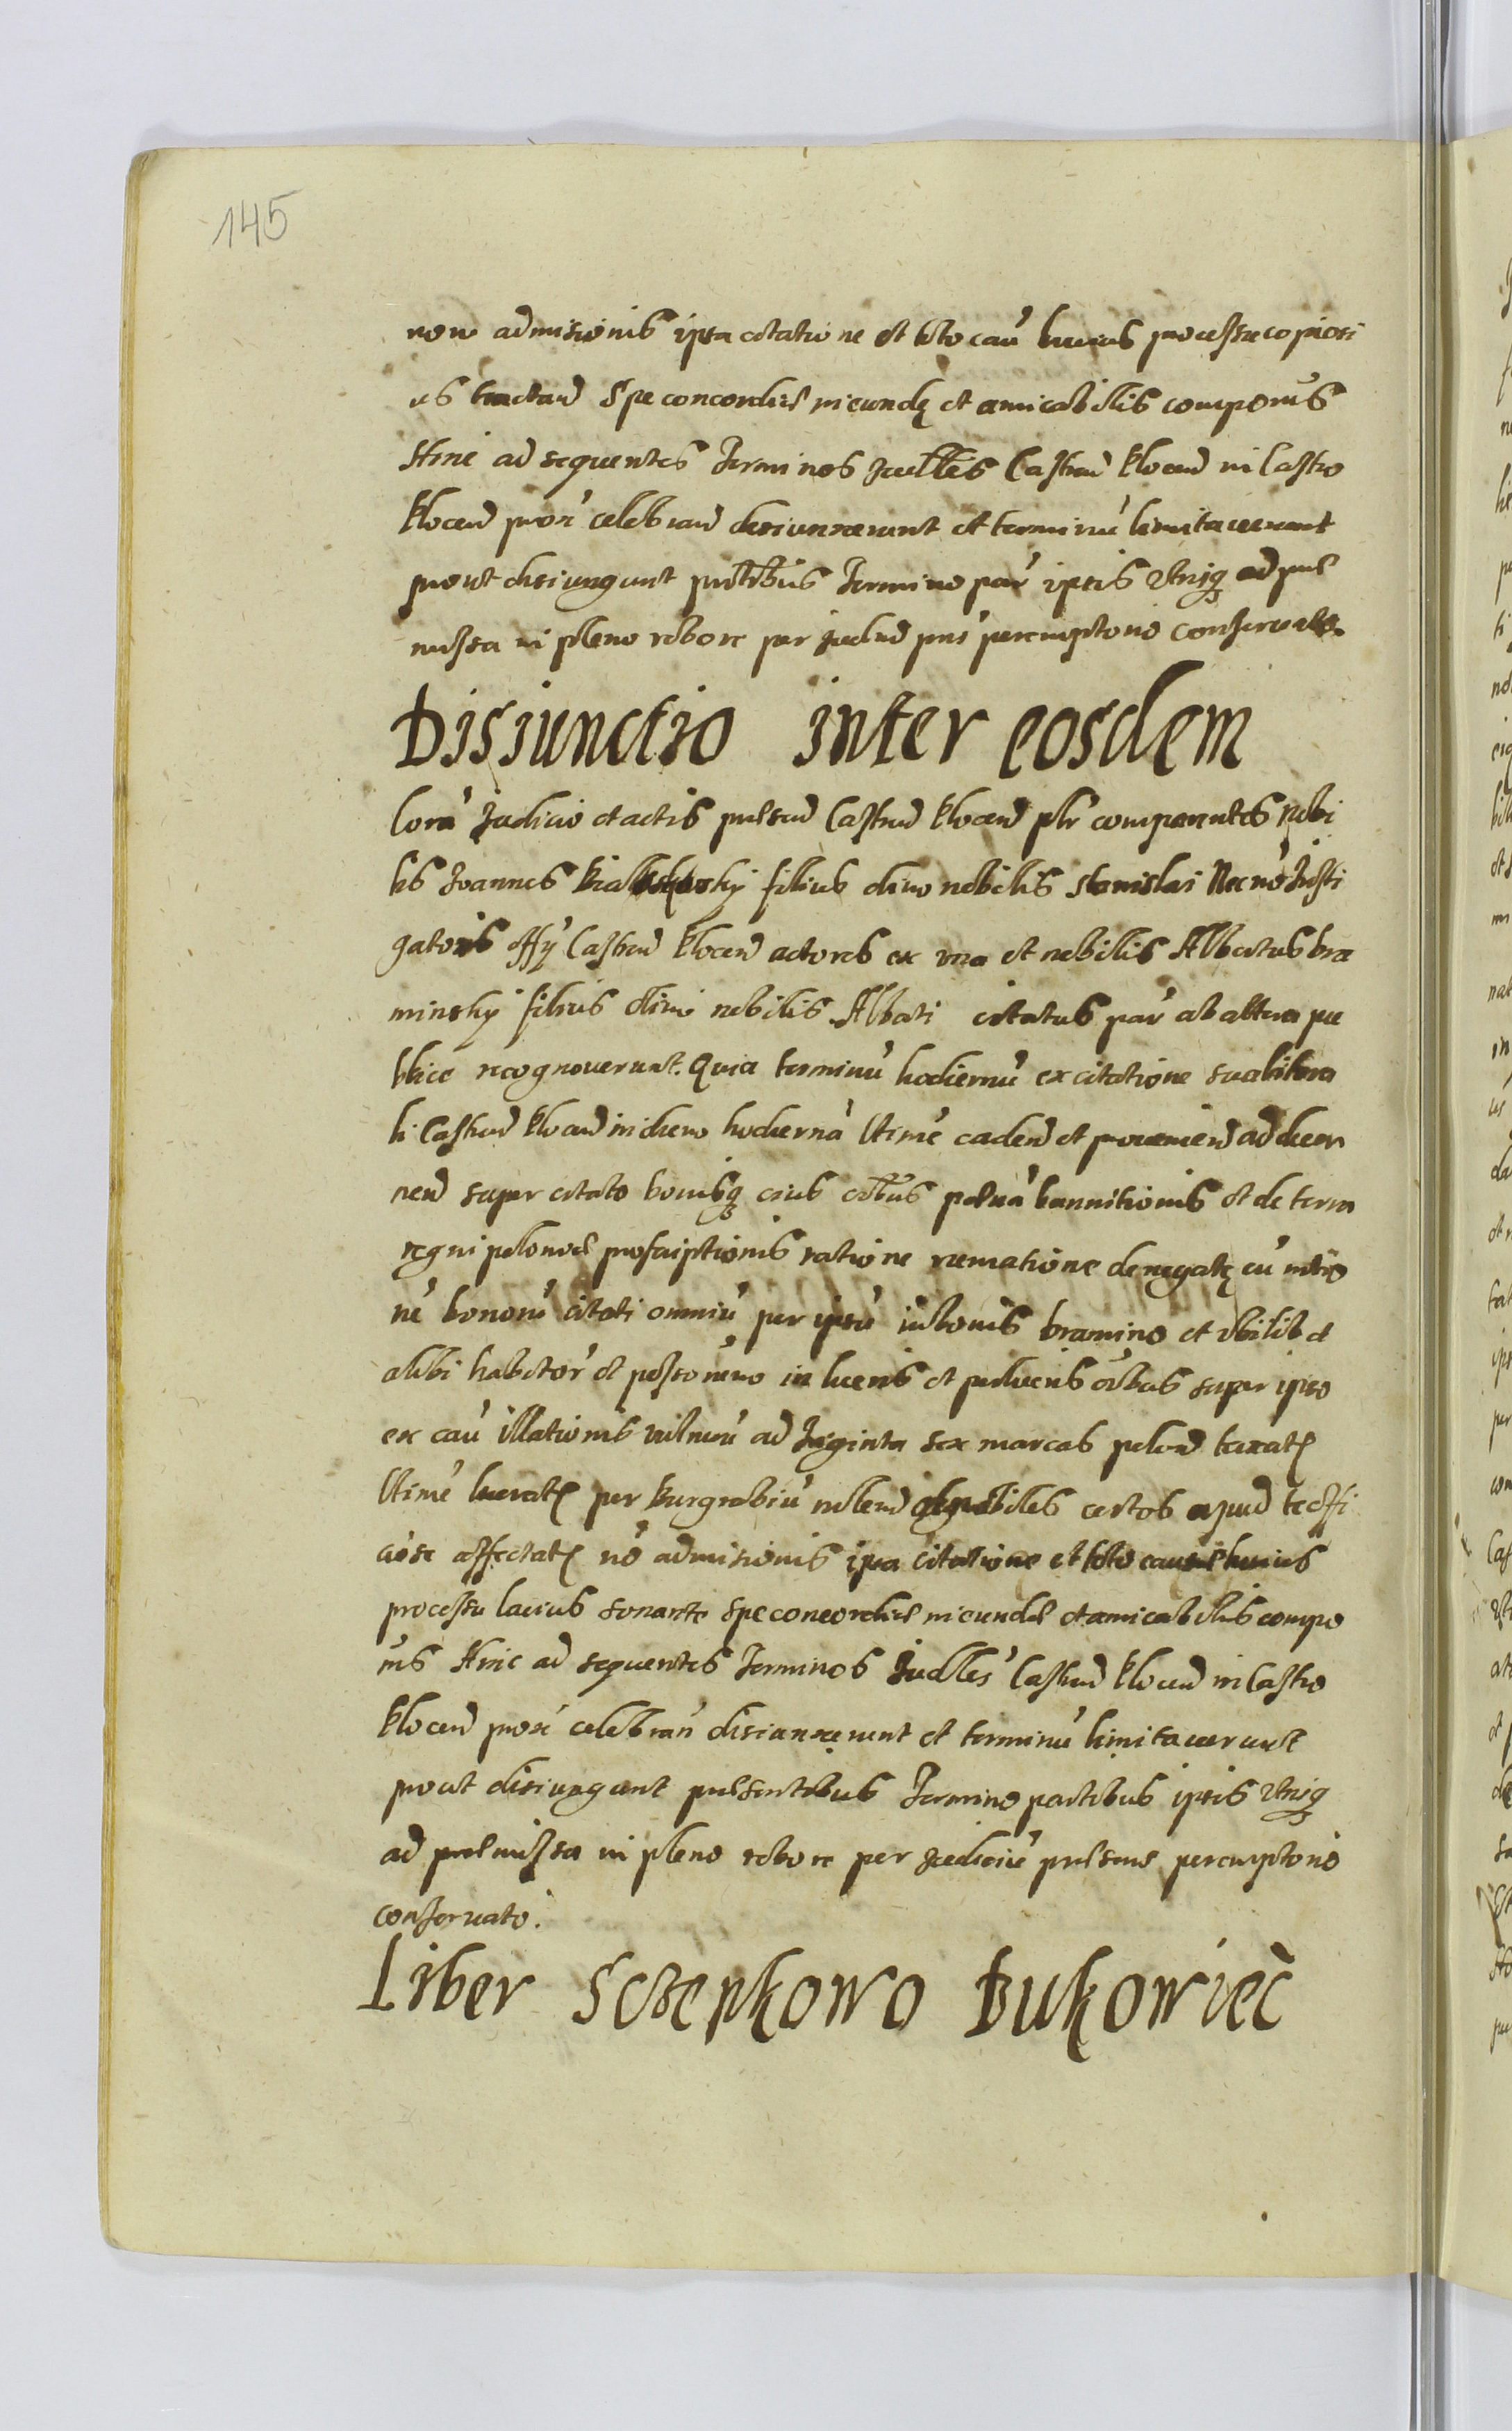 145
non admisionis ipsa citatione et toto cau huius processu copiosi
us tractan Spe concordiae ineundę et amicabilis componis
Hinc ad sequentes Terminos Iudlles Castren Plocen in Castro
Plocen prox celebran disiunxerunt et terminu limitaverunt
prout disiungunt pntibus Termino par ipsis utrisq ad prae
missa in pleno robore per Iudiud pns peremptorie conservato
Disiunctio inter eosdem
Cora Iudicio et actis praesend Castren Plocen plr comparentes Nobi
lis Joannes filius olim nobilis Stanislai Necno Insti
gatoris offy Castren Plocen actores ex una et nobilis Albertus bra
minsky filius olim nobilis Alberti citatus par ab altera pu
blice recognoverunt. Quia terminu hodiernu ex citatione sua litera
li Castren Plocen in diem hodierna ltime caden et provenien ad decer
nen super citato bonisq eius oibus poena bannitionis et de terra
regni poloniae proscriptionis ratione denegatę cu
ne bonoru citati omniu per ipsu in bonis bramino et ubilibet
alibi habitor et possoru in lucris et perlucris oibus super ipso
ex cau illationis vulneru ad Triginta sex marcas polon taxatis
ltime lucratis per Burgrabiu nobiles certos apud te offi
ciose affectatis no admisionis ipsa citatione et toto huius
processu lacius sonante spe concordiae ineundae et amicabilis compo
nis Hinc ad sequentes Terminos Iudlles Castren Plocen in Castro
Plocen prox celebran disiunxerunt et terminu limitaverunt
prout disiungunt praesentibus Termino partibus ipsis utrisq
ad praemissa in pleno robore per Iudiciu praesens peremptorie
conservato.
Liber Sczepkowo Bukowiec